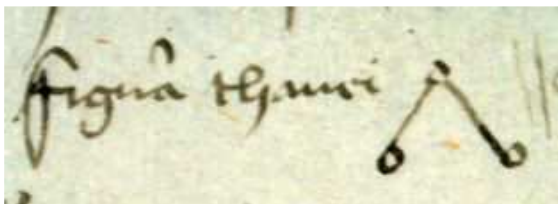 figura thauri